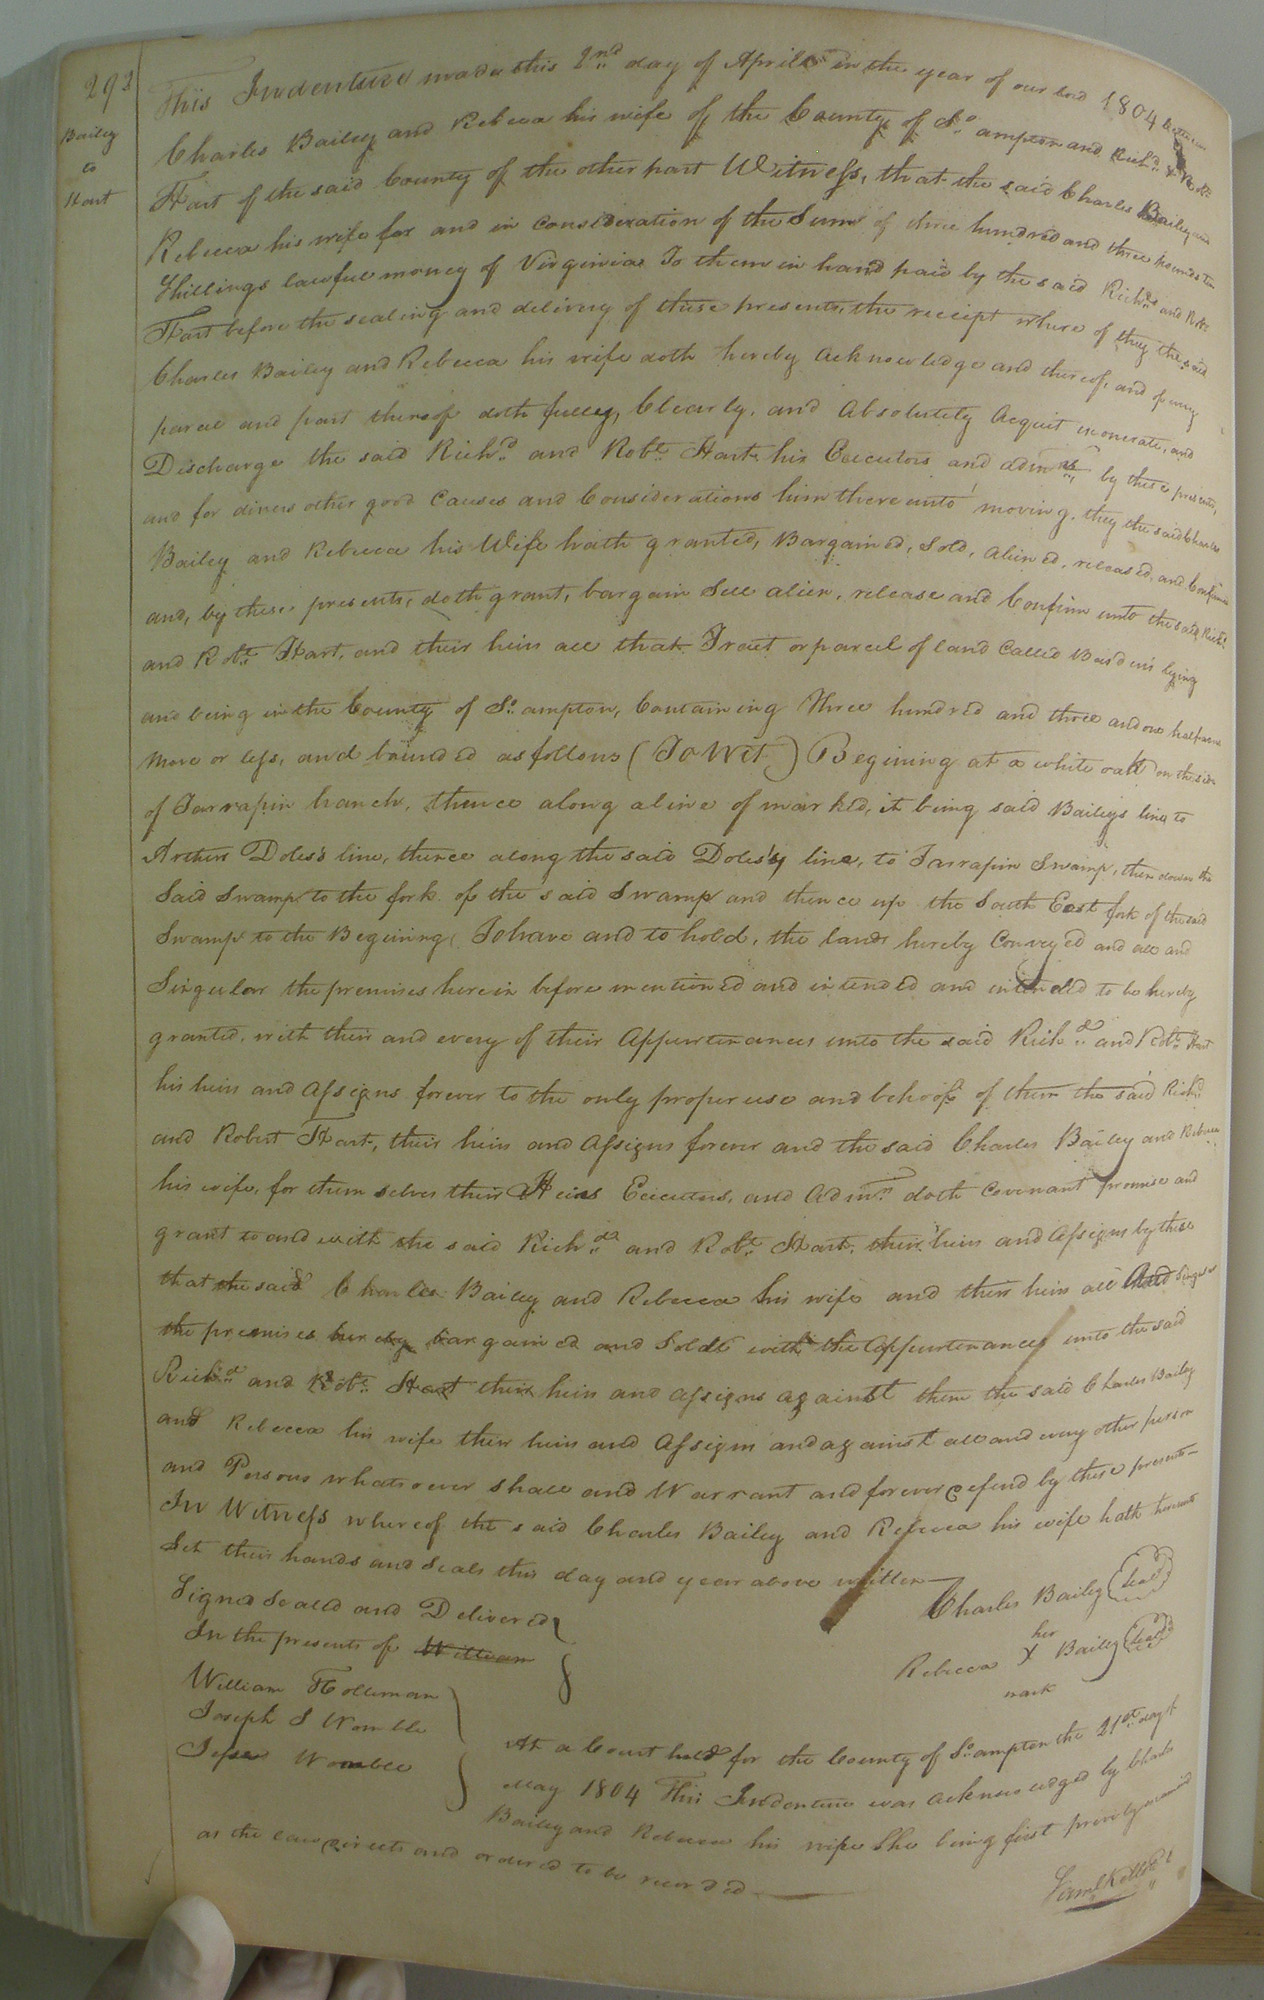 293
Bailey
to
Hart
This Indenture made this 2nd day of April in the year of our Lord 1804 between
Charles Bailey and Rebecca his wife of the County of So.ampton and Richd. & Robt.
Hart of the said County of the other part Witness, that the said Charles Bailey and
Rebecca his wife for and in consideration of the Sum of three hundred and three pounds ten
Shillings lawful money of Virginia To them in hand paid by the said Richd. and Robt.
Hart before the sealing and delivery of these presents, the receipt where of they the said
Charles Bailey and Rebecca his wife doth hereby acknowledge and thereof, and of every
parcel and part thereof doth fully, Clearly, and Absolutely Acquit exonerate, and
Discharge the said Richd. and Robt. Hart his Executors and admrs. by these presents,
and for divers other good Causes and Considerations him thereunto moving. they the said Charles
Bailey and Rebecca his Wife hath granted, Bargained, Sold, aliened, released, and Confirmed
and, by these presents, doth grant, bargain Sell alien, release and Confirm unto the said Richd.
and Robt. Hart, and their heirs all that Tract or parcel of land Called Bairden's lying
and being in the County of So.ampton, Containing Three hundred and three and one half acres
More or less, and bounded as follows (To Wit) Begining at a white oak on the side
of Tarrapin branch, thence along a line of marked, it being said Baileys line to
Arthur Doles's line, thence along the said Doles's line, to Tarrapin Swamp, then down the
Said Swamp to the fork of the said Swamp and thence up the South East fork of the said
Swamp to the Begining To have and to hold, the lands hereby Conveyed and all and
Singular the premises herein before mentioned and intended and intended to be hereby
granted, with their and every of their Appurtenances unto the said Richd. and Robt. Hart
his heirs and Assigns forever to the only proper use and behoof of them the said Richd.
and Robert Hart, their heirs and Assigns forever and the said Charles Bailey and Rebecca
his wife, for themselves their Heirs Executors, and Admrs. doth Covenant promise and
grant to and with the said Richd. and Robt. Hart, their heirs and Assigns by these
that the said Charles Bailey and Rebecca his wife and their heirs all And Singular
the premises hereby bargained and Sold with the Appurtenances unto the said
Richd. and Robt. Hart their heirs and Assigns against them the said Charles Bailey
and Rebecca his wife their heirs and Assigns and against all and every other person
and Persons whatsoever shall and Warrant and forever defend by these presents
In Witness whereof the said Charles Bailey and Rebecca his wife hath hereunto
Set their hands and Seals this day and year above written
Signed Sealed and Delivered
In the presents of William
William Holleman
Joseph S Womble
Jesse Womble
Charles Bailey (seal)
her
Rebecca X Bailey (seal)
mark
At a Court held for the County of So.ampton the 21st day of
May 1804 This Indenture was acknowledged by Charles
Bailey and Rebecca his wife She being first privily examined
as the law directs and ordered to be recorded
Saml Kello